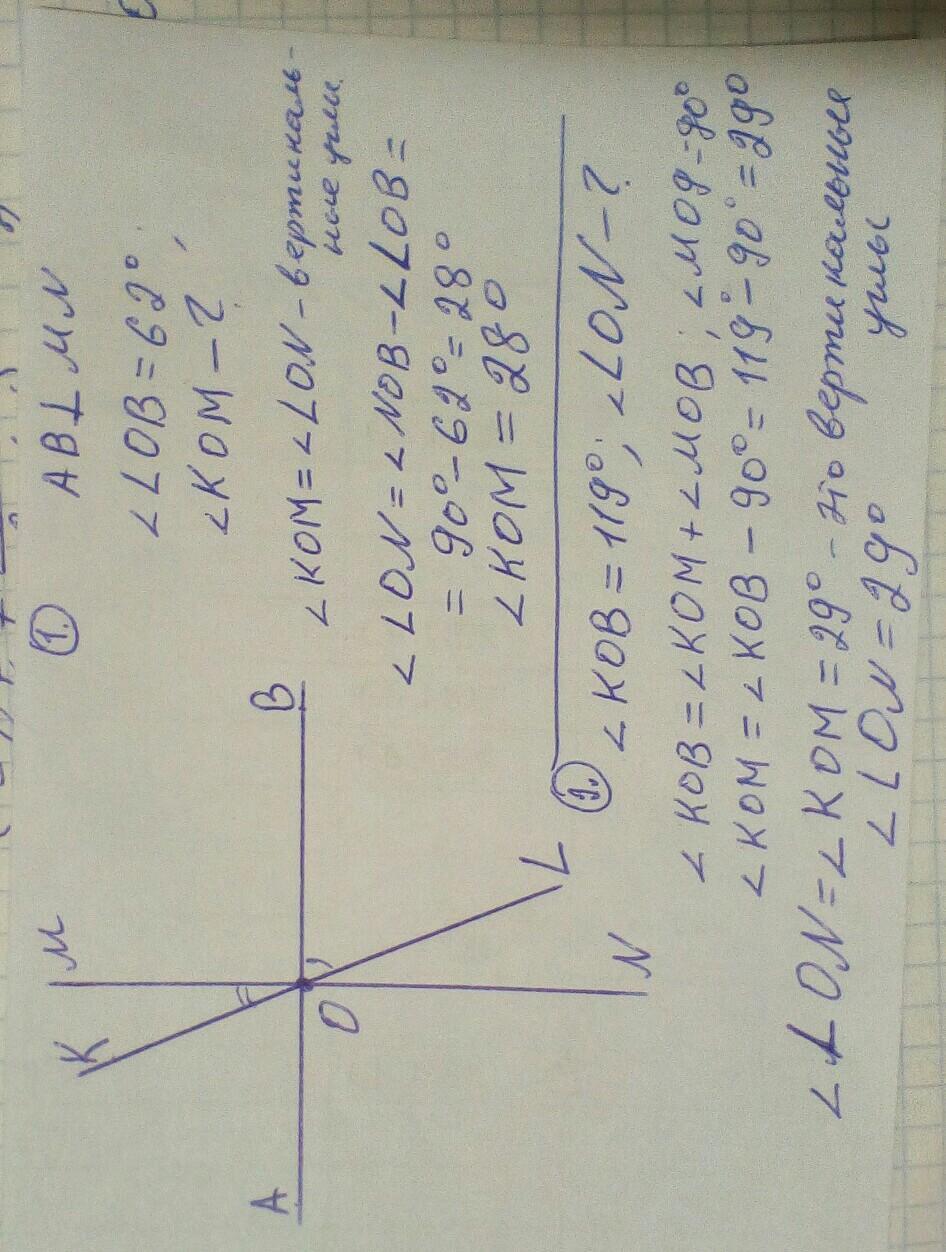 К
М
А
О
В
L
N
1. AB ⊥ MN
∠LOB = 62°;
∠KOM – ?
∠KOM = ∠LON – вертикаль-
ные углы.
∠LON = ∠NOB – ∠LOB =
= 90° – 62° = 28°
∠KOM = 280
2. ∠KOB = 119°; ∠LON – ?
∠KOB = ∠KOM + ∠MOB; ∠MOB = 90°
∠KOM = ∠KOB – 90° = 119° – 90° = 29°
∠LON = ∠KOM = 29° – это вертикальные
углы
∠LON = 29°